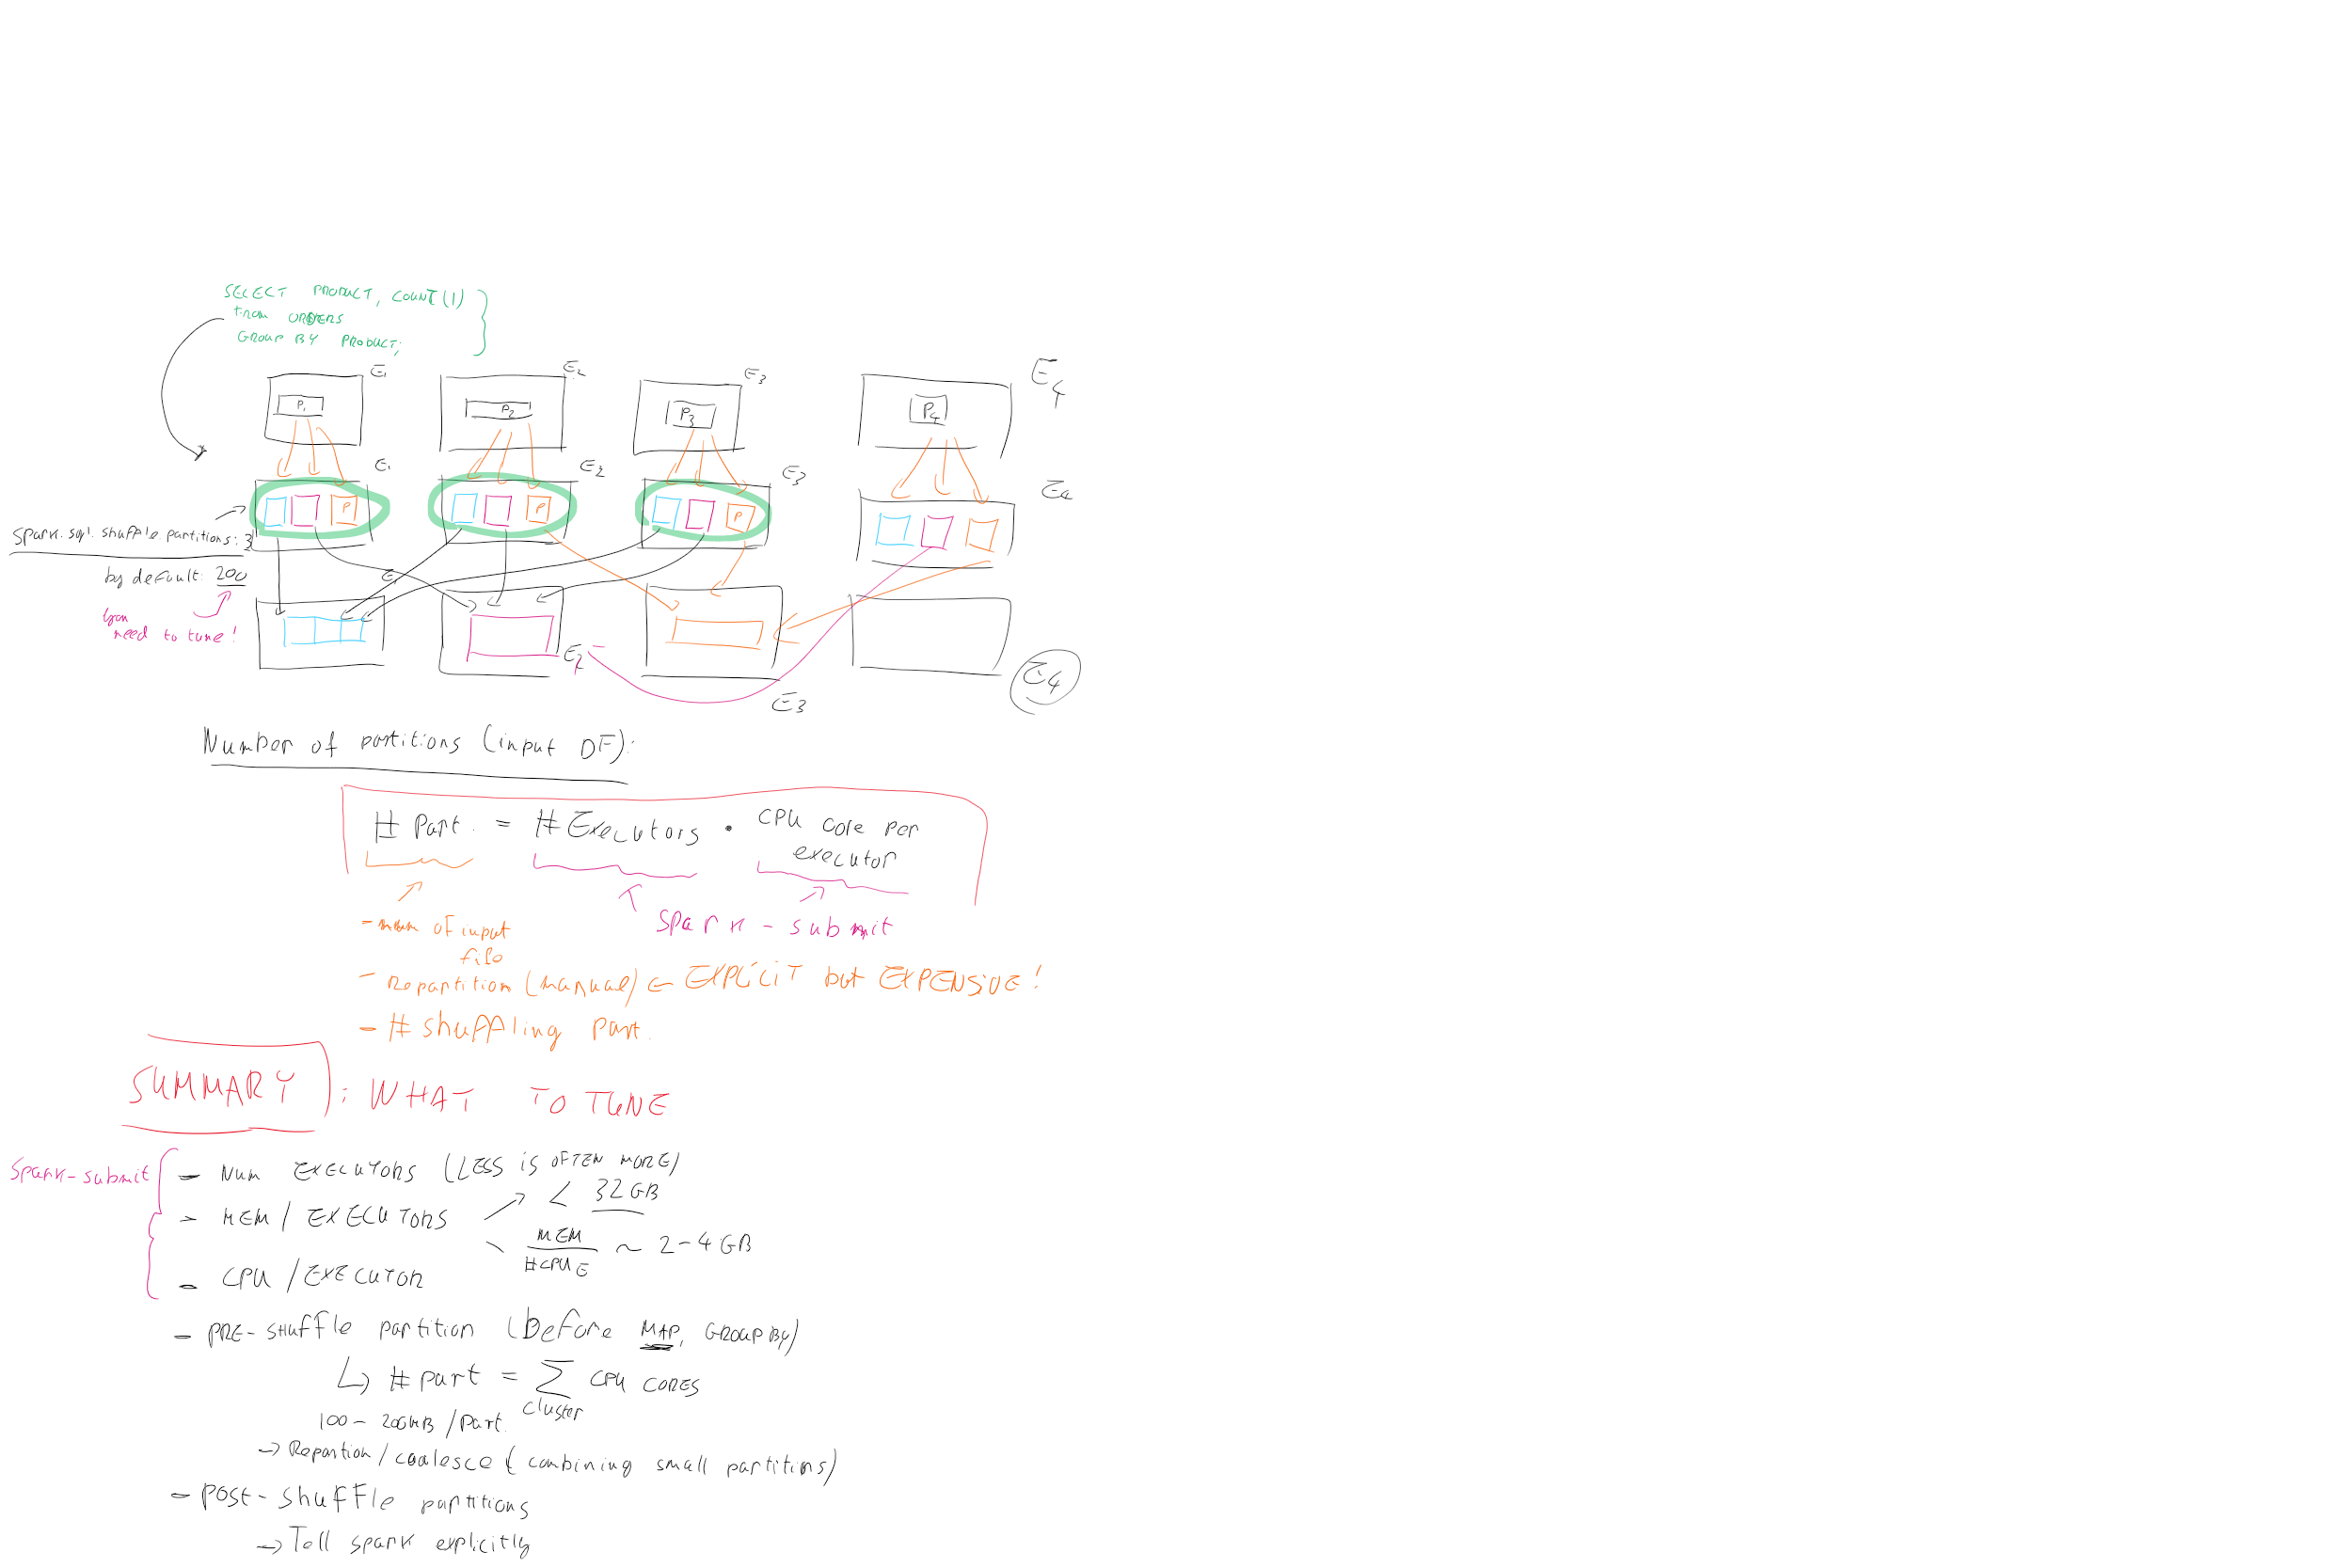 SELECT PRODUCT, COUNT(1)
from ORDERS
GROUP BY PRODUCT;
E1
E2
E3
E4
P1
P2
P3
P4
E1
E2
E3
E4
P
P
P
spark.sql.shuffle.partitions: 3
by default: 200
you
need to tune!
E1
E2
E3
E4
Number of partitions (input DF):
# Part. = #Executors • CPU core per
executor
- num of input
file
spark-submit
- Repartition (manual) ← EXPLICIT but EXPENSIVE!
- # shuffling part.
SUMMARY: WHAT TO TUNE
spark-submit
- NUM EXECUTORS (LESS is OFTEN MORE)
- MEM / EXECUTORS
< 32 GB
MEM
#CPU E
~ 2-4 GB
- CPU / EXECUTOR
- PRE-shuffle partition (before MAP, GROUP BY)
↳ # part = Σ CPU CORES
cluster
100 - 200MB / Part.
→ Repartion / coalesce (combining small partitions)
- POST-shuffle partitions
→ Tell spark explicitly